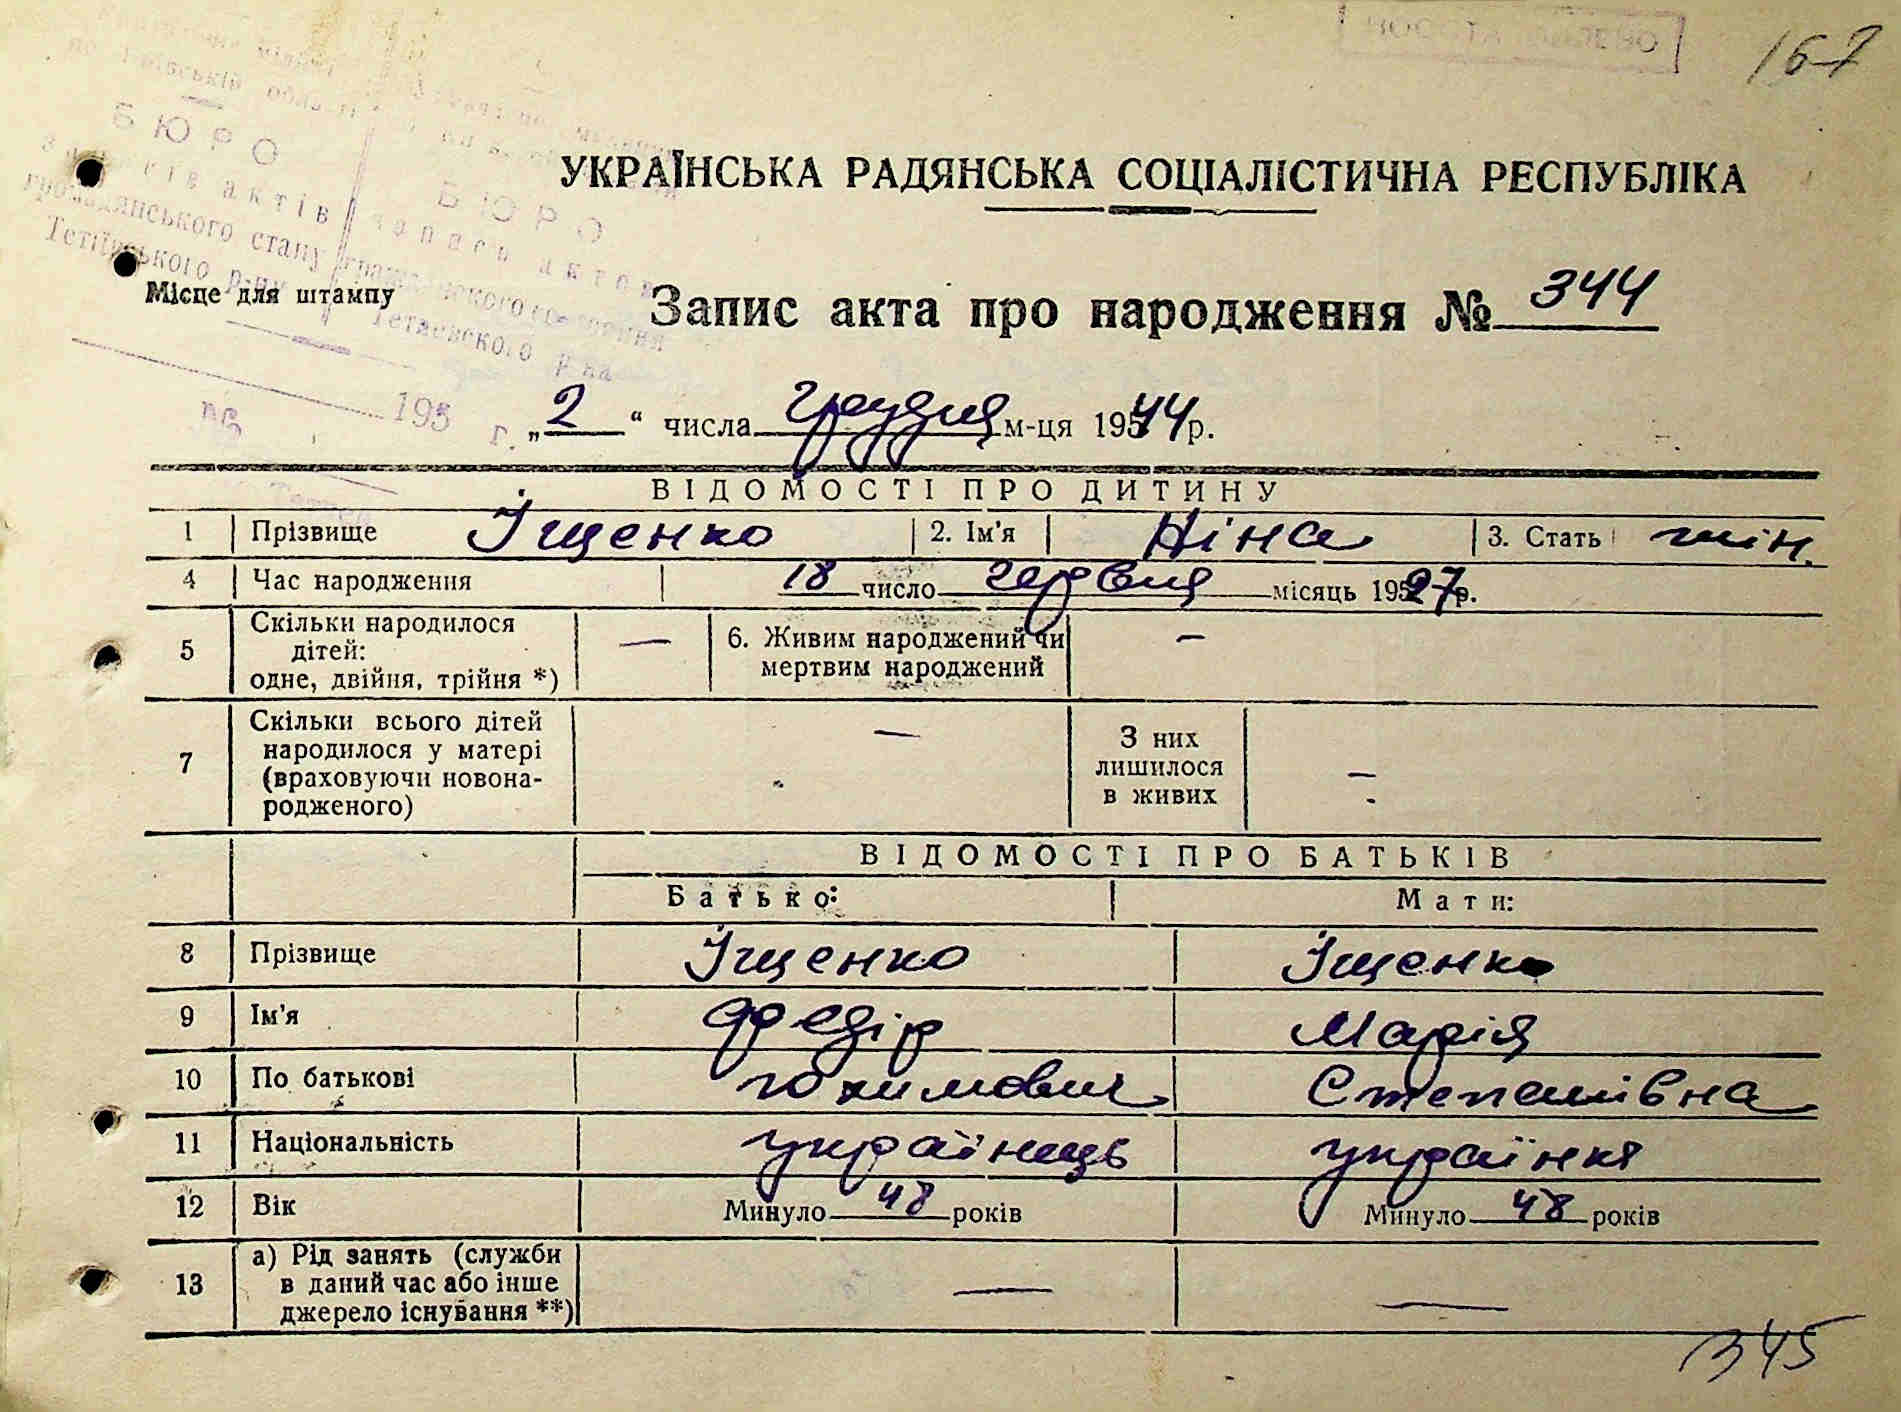 167
БЮРО
записів актів
громадянського стану
Тетіївського р-ну
БЮРО
записи актов
гражданского состояния
Тетиевского р-на
195 г.
УКРАЇНСЬКА РАДЯНСЬКА СОЦІАЛІСТИЧНА РЕСПУБЛІКА
Місце для штампу
Запис акта про народження № 344
„2“ числа грудня м-ця 1944 р.
ВІДОМОСТІ ПРО ДИТИНУ
1 Прізвище Іщенко 2. Ім'я Ніна 3. Стать жін.
4 Час народження 18 число червня місяць 1927 р.
5 Скільки народилося дітей: одне, двійня, трійня *) — 6. Живим народжений чи мертвим народжений —
7 Скільки всього дітей народилося у матері (враховуючи новона-родженого) — З них лишилося в живих —
ВІДОМОСТІ ПРО БАТЬКІВ
Батько: Мати:
8 Прізвище Іщенко Іщенко
9 Ім'я Федір Марія
10 По батькові Юхимович Степанівна
11 Національність українець українка
12 Вік Минуло 48 років Минуло 48 років
13 а) Рід занять (служби в даний час або інше джерело існування **) — —
345